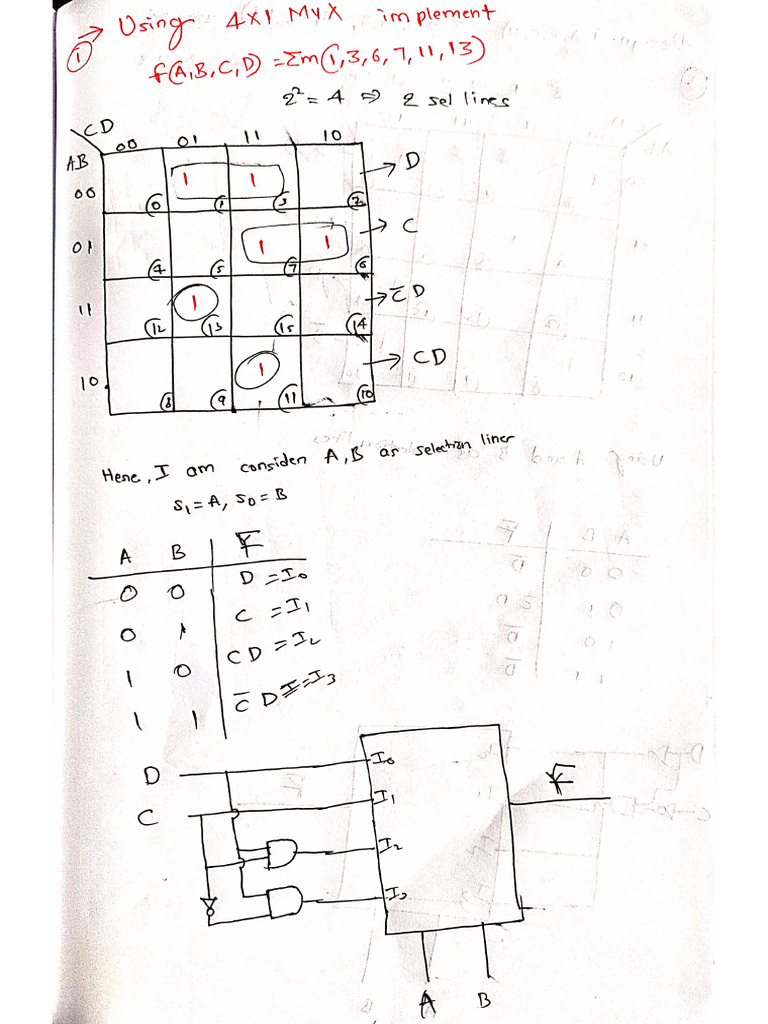 ① Using 4x1 Mux, implement
f(A,B,C,D) = Σm(1,3,6,7,11,13)
2² = 4 ⇒ 2 sel lines
CD
AB
00 01 11 10
00 1 1 → D
0 1 3 2
01 1 1 → C
4 5 7 6
11 1 → C̅D
12 13 15 14
10 1 → CD
8 9 11 10
Here, I am consider A,B as selection lines
S₁=A, S₀=B
A B F
0 0 D = I₀
0 1 C = I₁
1 0 CD = I₂
1 1 C̅D = I₃
D I₀
C I₁ F
I₂
I₃
A B